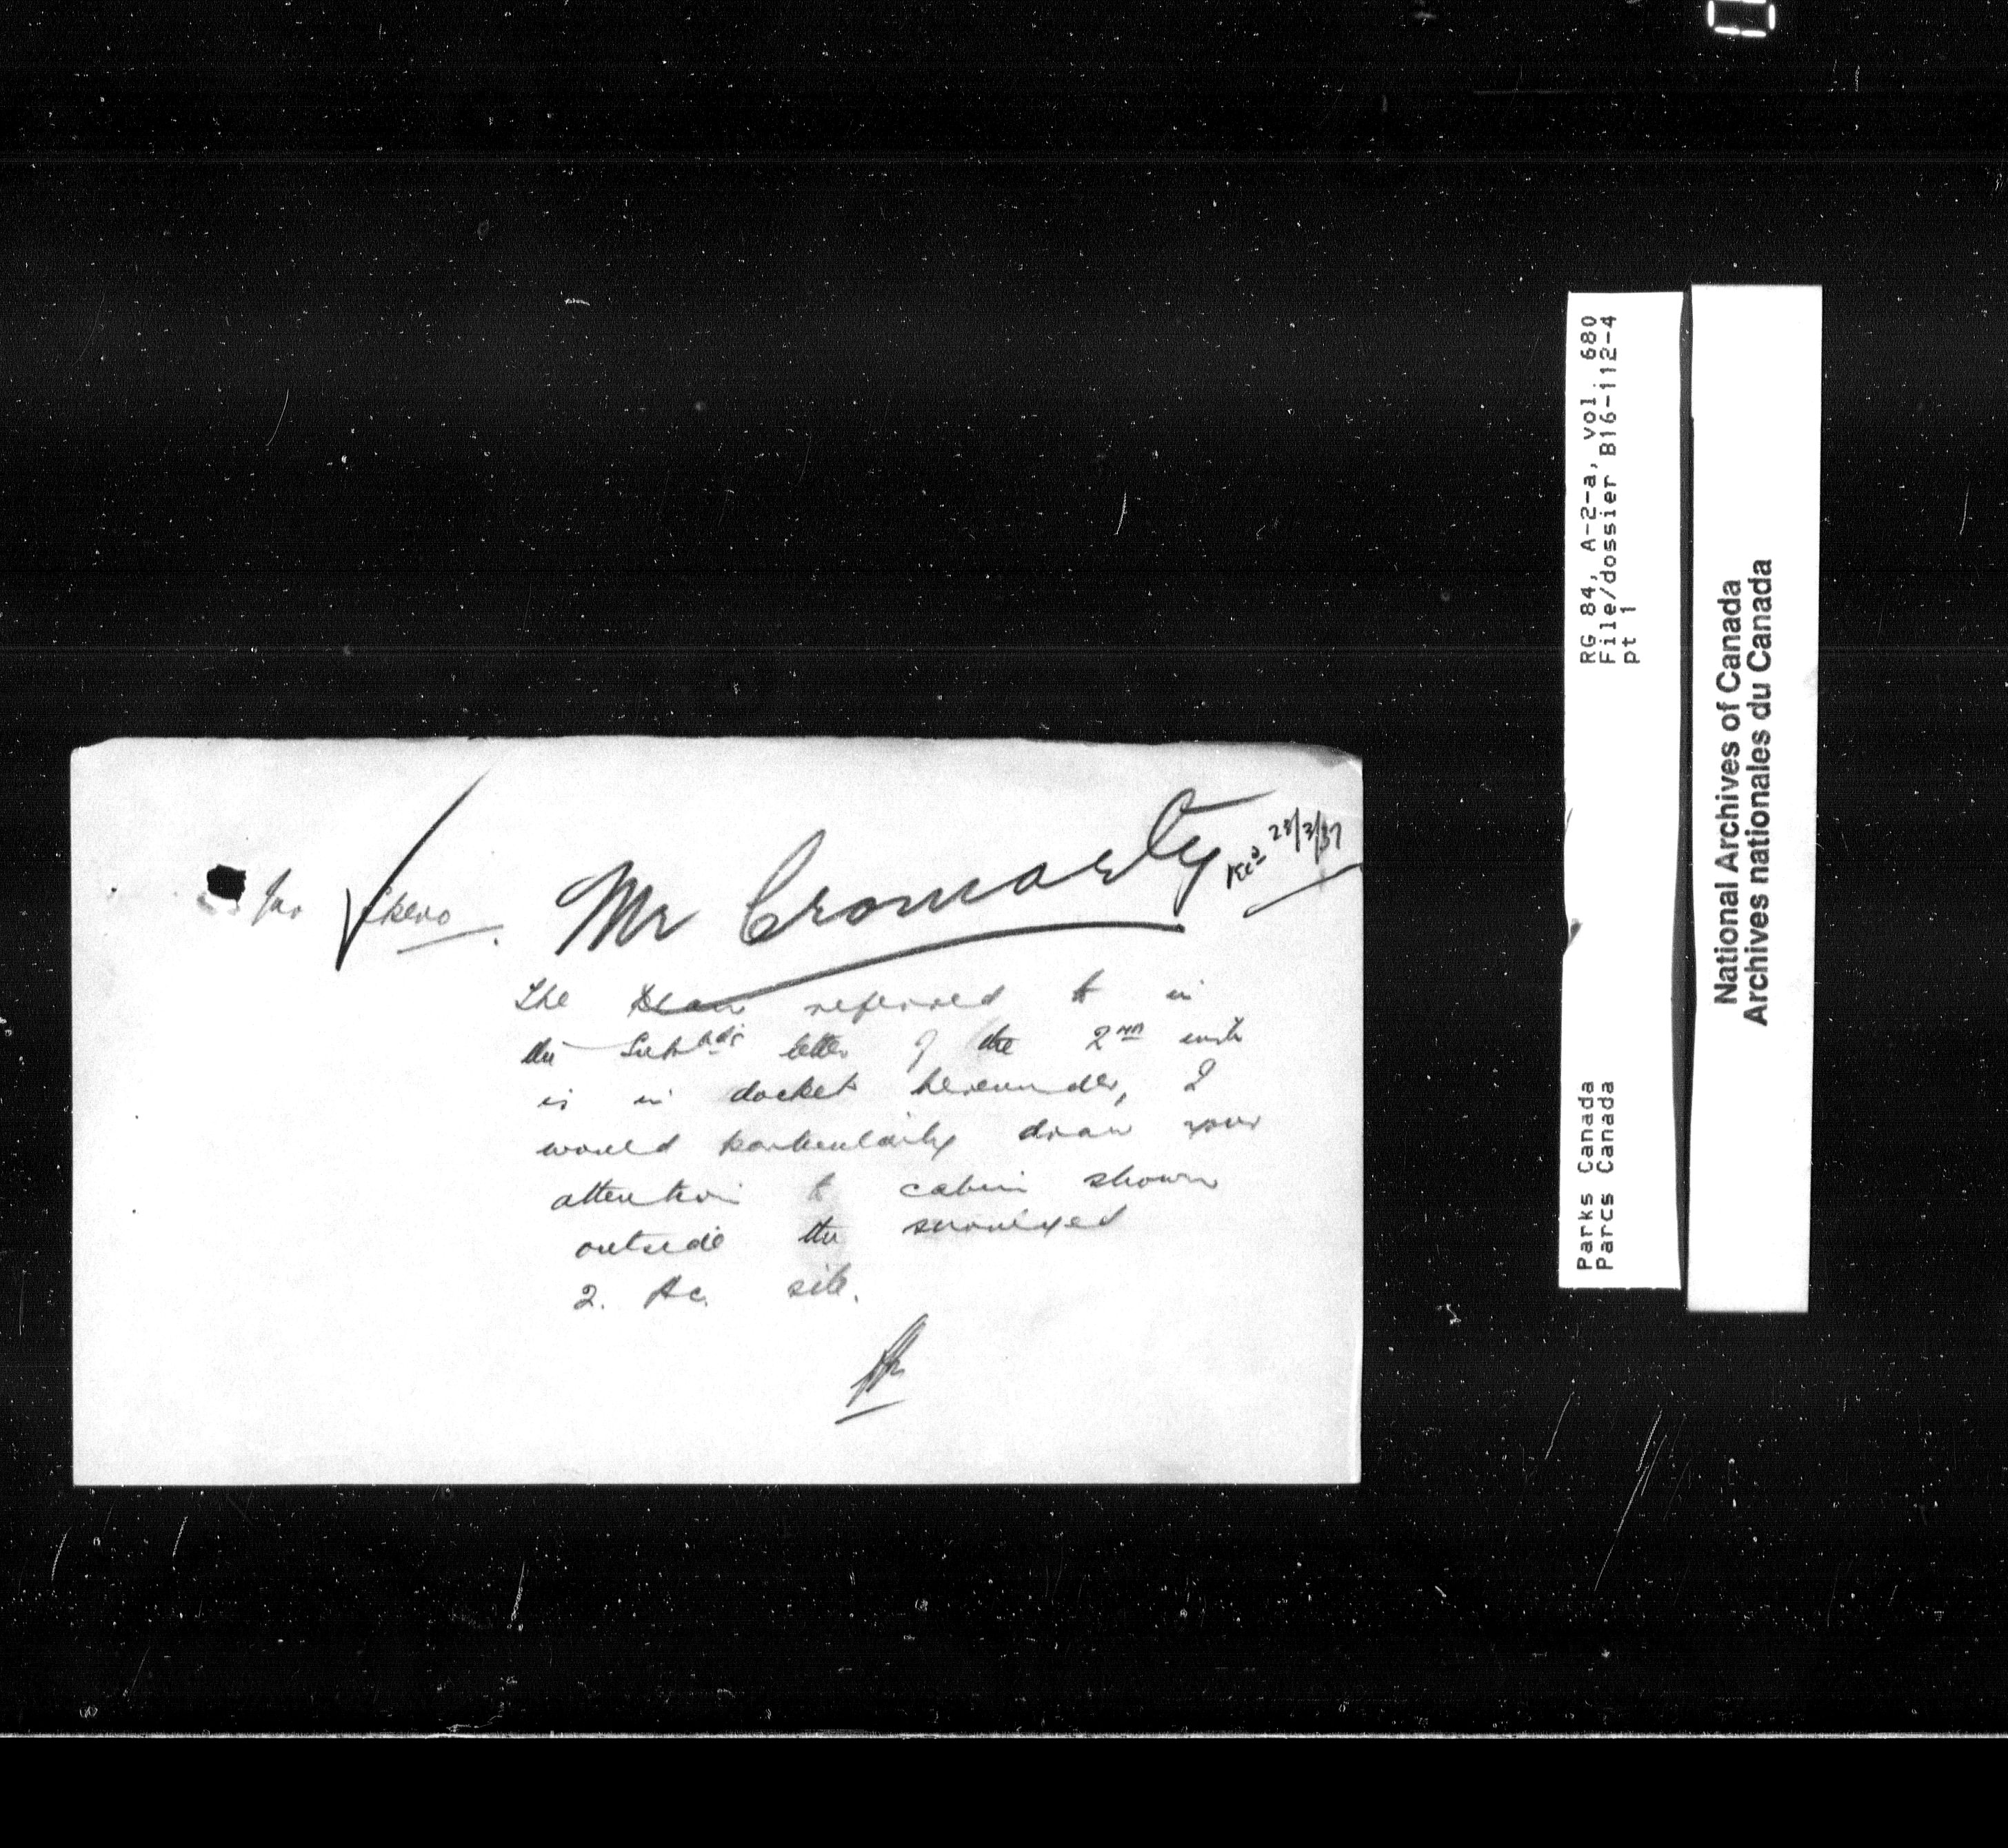 Mr Cromarty
Rec'd 23/3/37
The plan referred to in
the Supt's letter of the 2nd inst
is in docket hereunder, I
would particularly draw your
attention to cabin shown
outside the surveyed
2. Ac. site.
RG 84, A-2-a, vol. 680
File/dossier B16-112-4
pt 1
Parks Canada
Parcs Canada
National Archives of Canada
Archives nationales du Canada